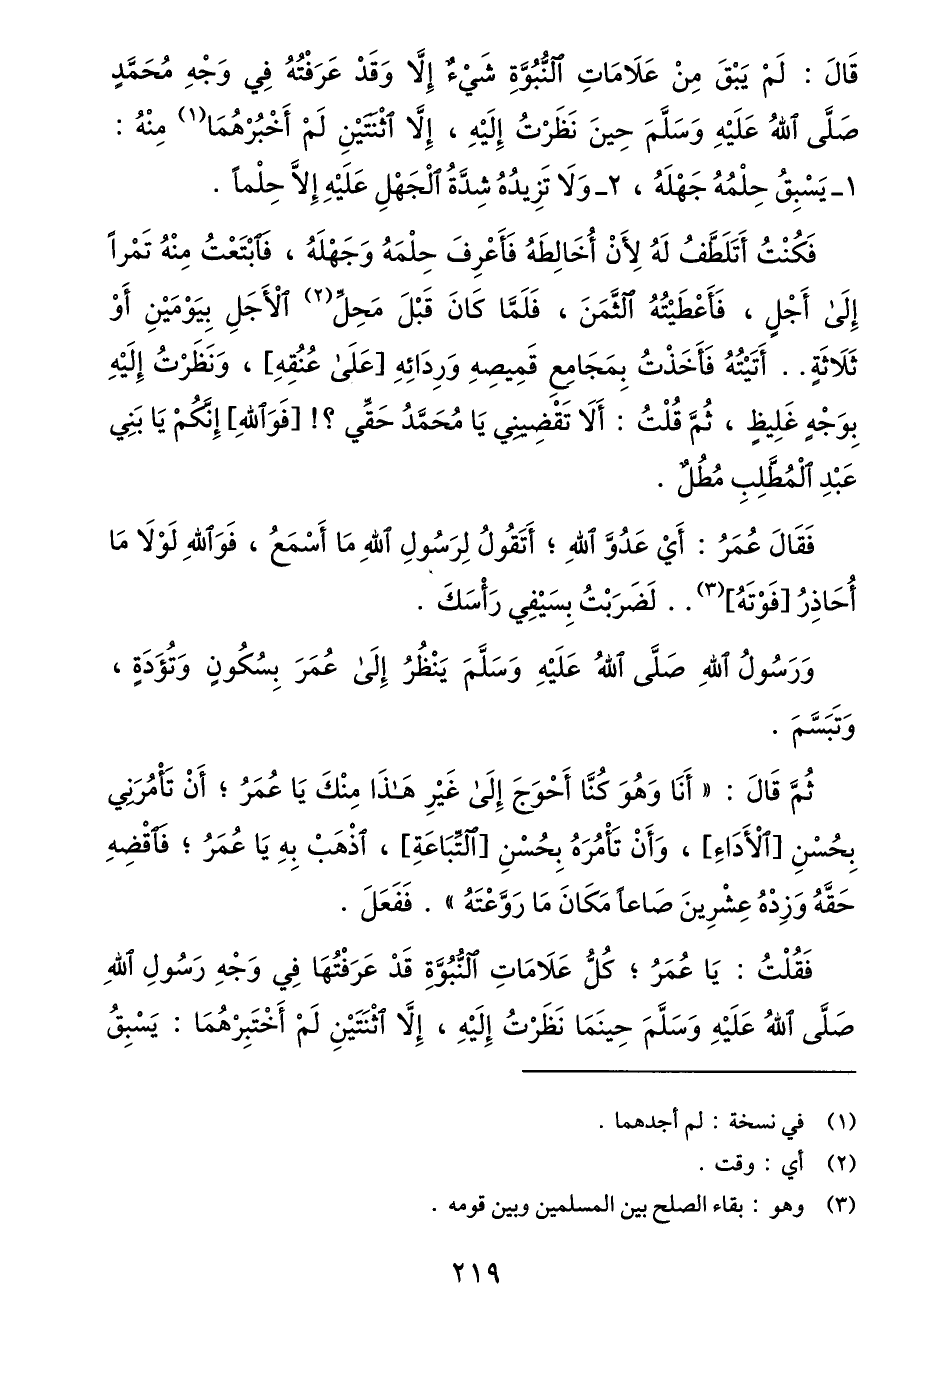 قَالَ : لَمْ يَبْقَ مِنْ عَلَامَاتِ ٱلنُّبُوَّةِ شَيْءٌ إِلَّا وَقَدْ عَرَفْتُهُ فِي وَجْهِ مُحَمَّدٍ
صَلَّى ٱللهُ عَلَيْهِ وَسَلَّمَ حِينَ نَظَرْتُ إِلَيْهِ ، إِلَّا ٱثْنَتَيْنِ لَمْ أَخْبُرْهُمَا(١) مِنْهُ :
١ـ يَسْبِقُ حِلْمُهُ جَهْلَهُ ، ٢ـ وَلَا تَزِيدُهُ شِدَّةُ ٱلْجَهْلِ عَلَيْهِ إِلاَّ حِلْماً .
فَكُنْتُ أَتَلَطَّفُ لَهُ لِأَنْ أُخَالِطَهُ فَأَعْرِفَ حِلْمَهُ وَجَهْلَهُ ، فَٱبْتَعْتُ مِنْهُ تَمْراً
إِلَىٰ أَجْلٍ ، فَأَعْطَيْتُهُ ٱلثَّمَنَ ، فَلَمَّا كَانَ قَبْلَ مَحِلِّ(٢) ٱلْأَجَلِ بِيَوْمَيْنِ أَوْ
ثَلَاثَةٍ. . أَتَيْتُهُ فَأَخَذْتُ بِمَجَامِعِ قَمِيصِهِ وَرِدَائِهِ [عَلَىٰ عُنُقِهِ] ، وَنَظَرْتُ إِلَيْهِ
بِوَجْهٍ غَلِيظٍ ، ثُمَّ قُلْتُ : أَلَا تَقْضِينِي يَا مُحَمَّدُ حَقِّي ؟! [فَوَٱللهِ] إِنَّكُمْ يَا بَنِي
عَبْدِ ٱلْمُطَّلِبِ مُطُلٌ .
فَقَالَ عُمَرُ : أَيْ عَدُوَّ ٱللهِ ؛ أَتَقُولُ لِرَسُولِ ٱللهِ مَا أَسْمَعُ ، فَوَٱللهِ لَوْلَا مَا
أُحَاذِرُ [فَوْتَهُ](٣). . لَضَرَبْتُ بِسَيْفِي رَأْسَكَ .
وَرَسُولُ ٱللهِ صَلَّى ٱللهُ عَلَيْهِ وَسَلَّمَ يَنْظُرُ إِلَىٰ عُمَرَ بِسُكُونٍ وَتُؤَدَةٍ ،
وَتَبَسَّمَ .
ثُمَّ قَالَ : « أَنَا وَهُوَ كُنَّا أَحْوَجَ إِلَىٰ غَيْرِ هَـٰذَا مِنْكَ يَا عُمَرُ ؛ أَنْ تَأْمُرَنِي
بِحُسْنِ [ٱلْأَدَاءِ] ، وَأَنْ تَأْمُرَهُ بِحُسْنِ [ٱلتِّبَاعَةِ] ، ٱذْهَبْ بِهِ يَا عُمَرُ ؛ فَٱقْضِهِ
حَقَّهُ وَزِدْهُ عِشْرِينَ صَاعاً مَكَانَ مَا رَوَّعْتَهُ » . فَفَعَلَ .
فَقُلْتُ : يَا عُمَرُ ؛ كُلُّ عَلَامَاتِ ٱلنُّبُوَّةِ قَدْ عَرَفْتُهَا فِي وَجْهِ رَسُولِ ٱللهِ
صَلَّى ٱللهُ عَلَيْهِ وَسَلَّمَ حِينَمَا نَظَرْتُ إِلَيْهِ ، إِلَّا ٱثْنَتَيْنِ لَمْ أَخْتَبِرْهُمَا : يَسْبِقُ
(١) في نسخة : لم أجدهما .
(٢) أي : وقت .
(٣) وهو : بقاء الصلح بين المسلمين وبين قومه .
٢١٩